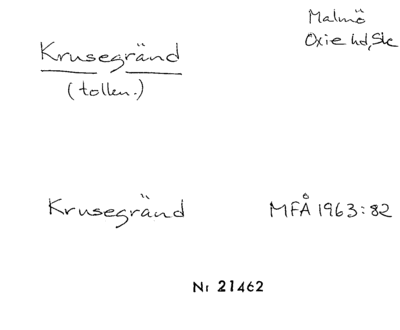 Malmö
Oxie hd, Sk
Krusegränd
(tollen.)
Krusegränd MFÅ 1963:82
Nr 21462